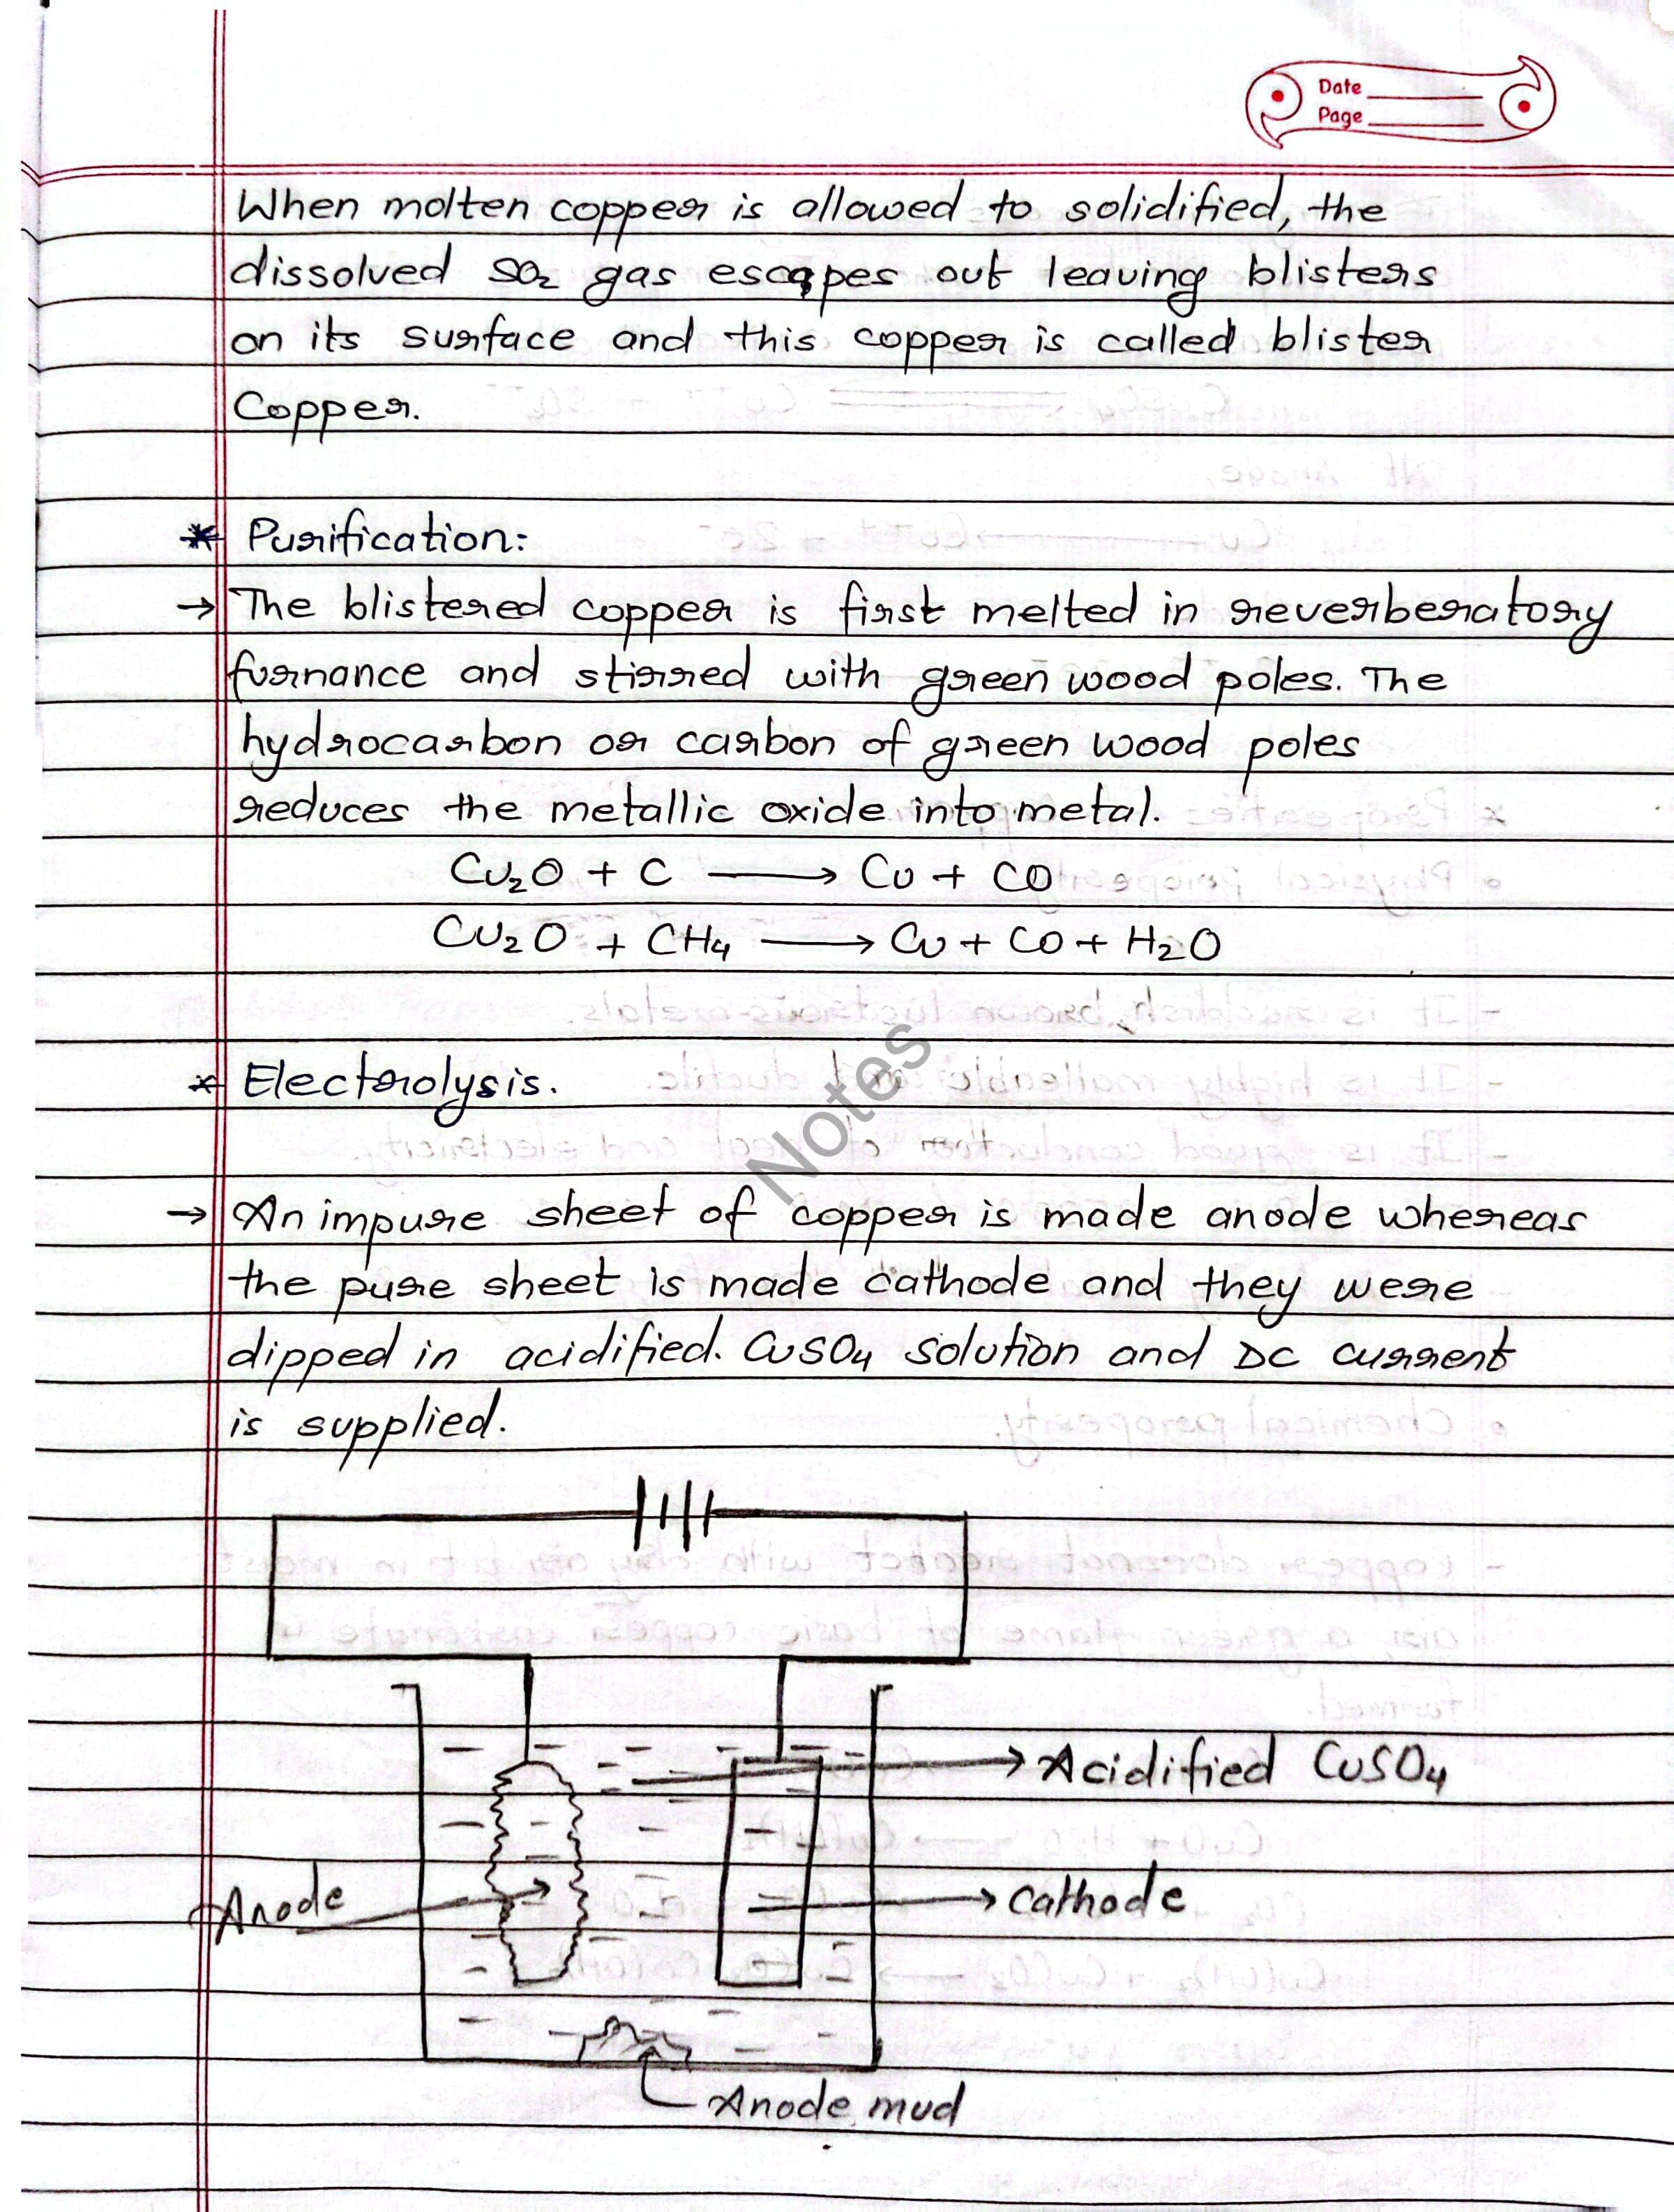 Date
Page
When molten copper is allowed to solidified, the
dissolved SO₂ gas escapes out leaving blisters
on its surface and this copper is called blister
Copper.
* Purification:
→ The blistered copper is first melted in reverberatory
furnance and stirred with green wood poles. The
hydrocarbon or carbon of green wood poles
reduces the metallic oxide into metal.
Cu₂O + C ⟶ Cu + CO
Cu₂O + CH₄ ⟶ Cu + CO + H₂O
* Electrolysis.
Notes
→ An impure sheet of copper is made anode whereas
the pure sheet is made cathode and they were
dipped in acidified. CuSO₄ solution and DC current
is supplied.
→ Acidified CuSO₄
Anode
→ Cathode
Anode mud